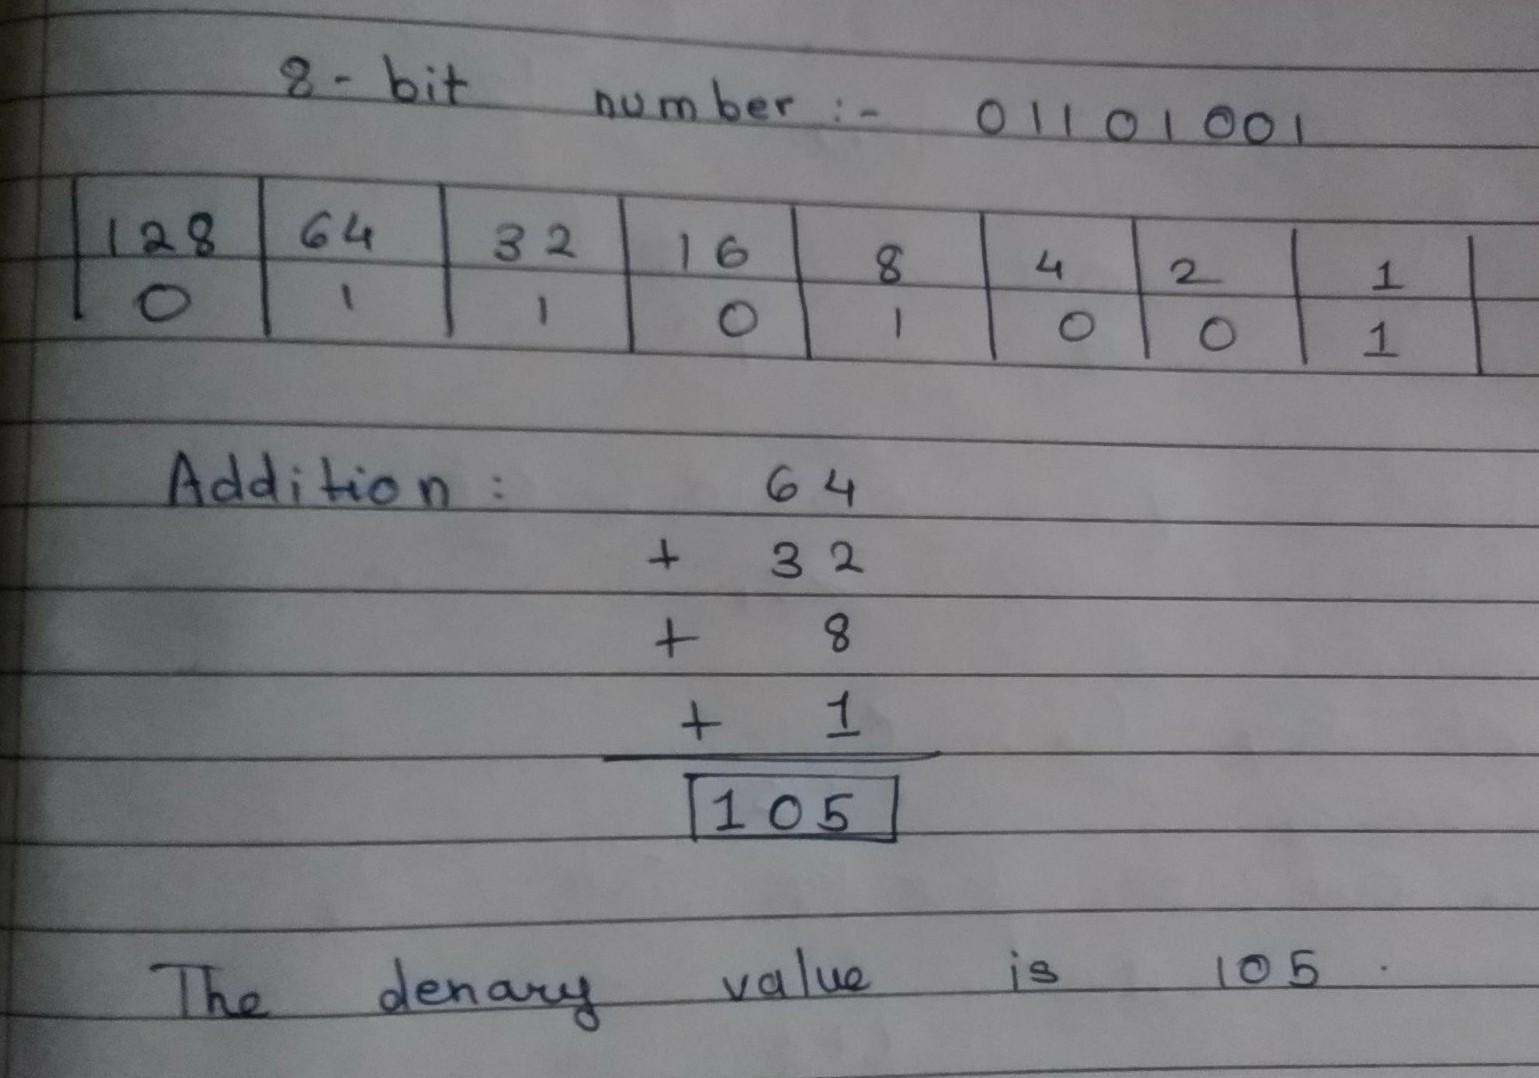 8-bit number :- 01101001
128 64 32 16 8 4 2 1
0 1 1 0 1 0 0 1
Addition : 64
+ 32
+ 8
+ 1
105
The denary value is 105.